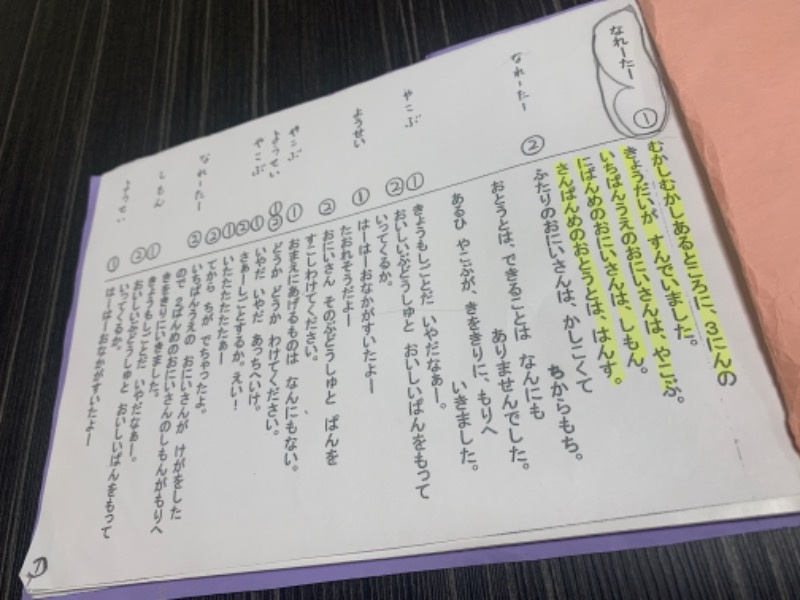 なれーたー ① むかしむかしあるところに、3にんの
きょうだいが すんでいました。
いちばんうえのおにいさんは、やこぶ。
にばんめのおにいさんは、しもん。
さんばんめのおとうとは、はんす。
なれーたー ② ふたりのおにいさんは、かしこくて ちからもち。
おとうとは、できることは なんにも ありませんでした。
あるひ やこぶが、きをきりに、もりへ いきました。
やこぶ ① きょうもしごとだ いやだなぁー。
② おいしいぶどうしゅと おいしいぱんをもって
いってくるか。
ようせい ① はーはーおなかがすいたよー
たおれそうだよー
② おにいさん そのぶどうしゅと ぱんを
すこしわけてください。
やこぶ ① おまえにあげるものは なんにもない。
ようせい ①② どうか どうか わけてください。
やこぶ ① いやだ いやだ あっちへいけ。
② さぁーしごとするか。えい！
① いたたたたたたぁー
② てから ちが でちゃったよ。
なれーたー ② いちばんうえの おにいさんが けがをした
ので 2ばんめのおにいさんのしもんがもりへ
きをきりにいきました。
しもん ① きょうもしごとだ いやだなぁー。
② おいしいぶどうしゅと おいしいぱんをもって
いってくるか。
ようせい ① はーはーおなかがすいたよー